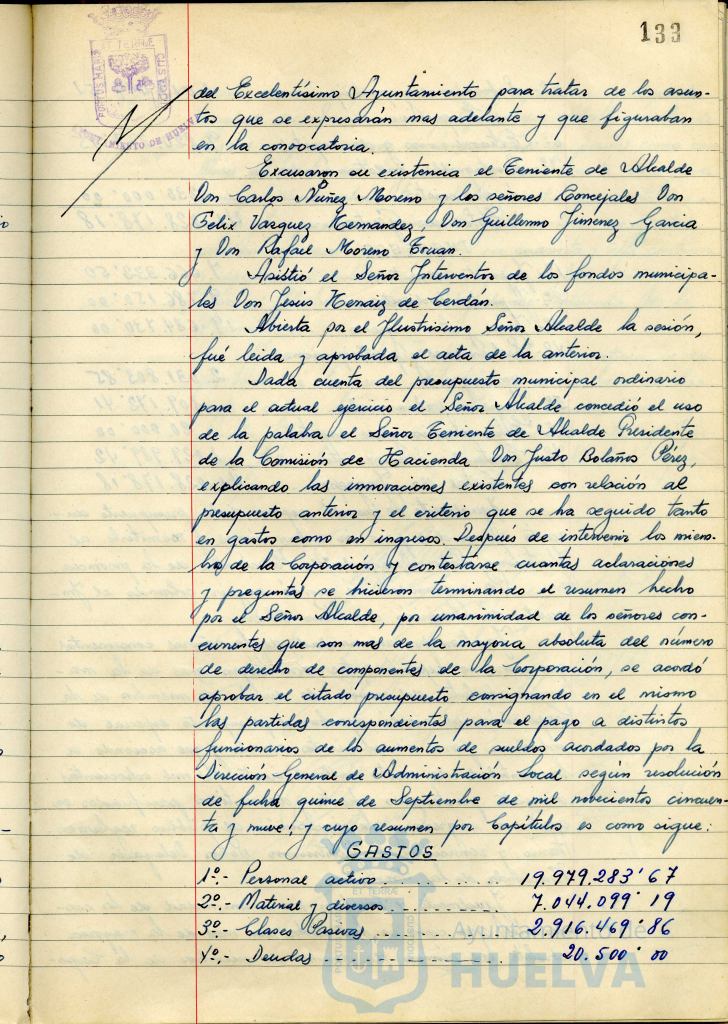 133
PORTUS MARIS ET TERRAE CUSTODIA
AYUNTAMIENTO DE HUELVA
del Excelentísimo Ayuntamiento para tratar de los asun-
tos que se expresarán mas adelante y que figuraban
en la convocatoria.
Excusaron su existencia el Teniente de Alcalde
Don Carlos Nuñez Moreno y los señores Concejales Don
Felix Vazquez Hernandez, Don Guillermo Jimenez Garcia
y Don Rafael Moreno Touan.
Asistió el Señor Interventor de los fondos municipa-
les Don Jesús Henaiz de Cerdán.
Abierta por el Ilustrisimo Señor Alcalde la sesión,
fué leida y aprobada el acta de la anterior.
Dada cuenta del presupuesto municipal ordinario
para el actual ejercicio el Señor Alcalde concedió el uso
de la palabra el Señor Teniente de Alcalde Presidente
de la Comisión de Hacienda Don Justo Bolaños Pérez,
explicando las innovaciones existentes con relación al
presupuesto anterior y el criterio que se ha seguido tanto
en gastos como en ingresos. Después de intervenir los miem-
bros de la Corporación y contestarse cuantas aclaraciones
y preguntas se hicieron terminando el resumen hecho
por el Señor Alcalde, por unanimidad de los señores con-
currentes que son mas de la mayoria absoluta del número
de derecho de componentes de la Corporación, se acordó
aprobar el citado presupuesto consignando en el mismo
las partidas correspondientes para el pago a distintos
funcionarios de los aumentos de sueldos acordados por la
Dirección General de Administración Local según resolución
de fecha quince de Septiembre de mil novecientos cincuen-
ta y nueve, y cuyo resumen por Capítulos es como sigue:
GASTOS
1º.- Personal activo .......... 19.979.283'67
2º.- Material y diversos .......... 7.044.099'19
3º.- Clases Pasivas .......... 2.916.469'86
4º.- Deudas .......... 20.500'00
Ayuntamiento de
HUELVA